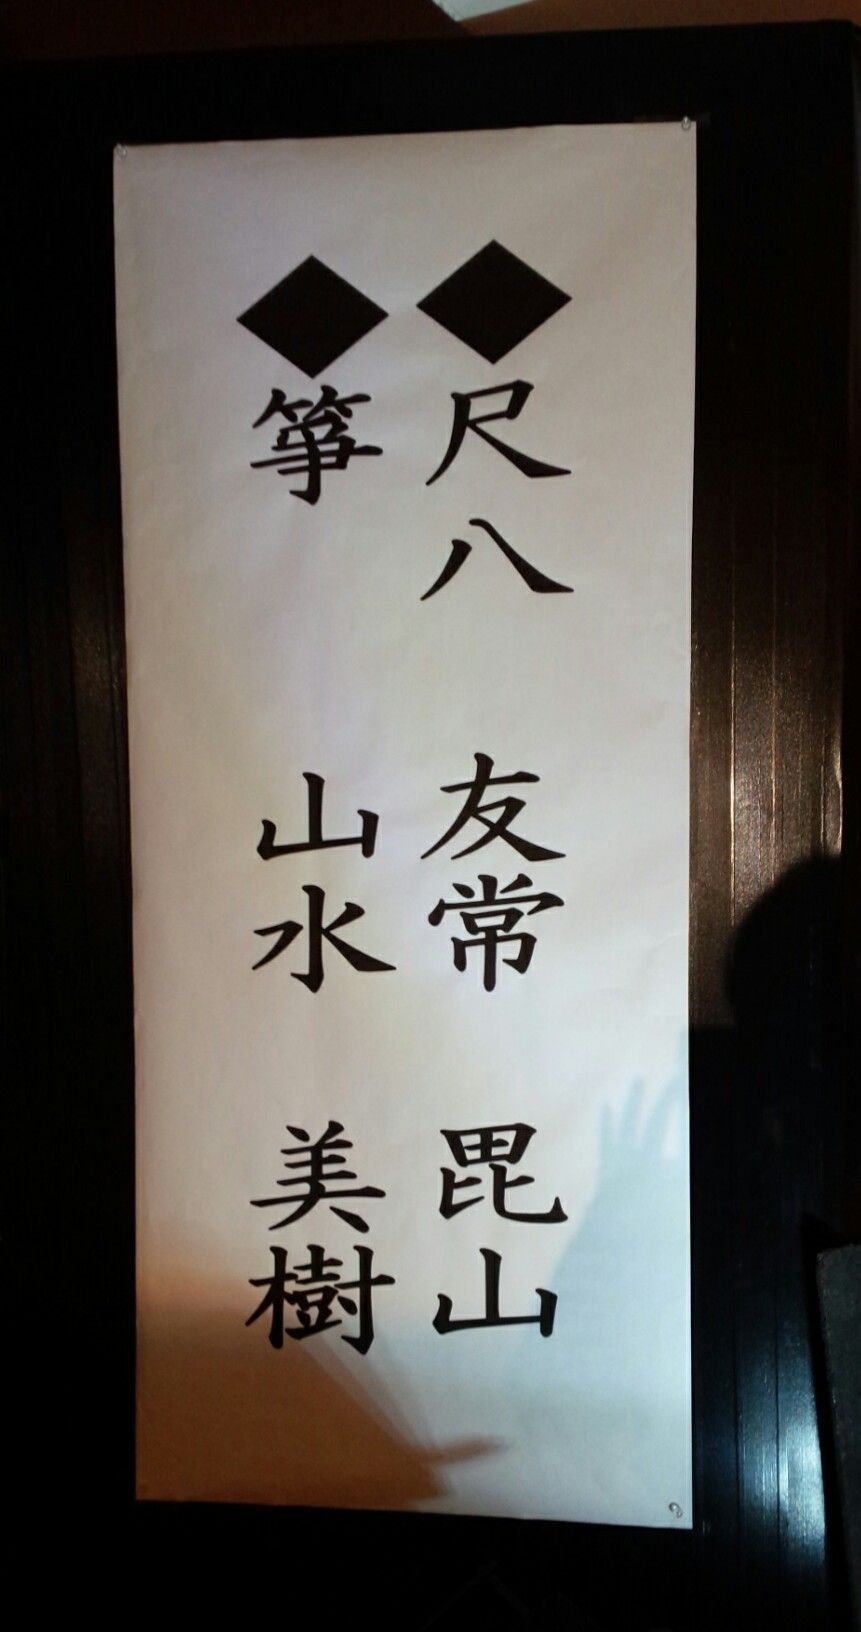 ◆尺八 友常 毘山
◆箏 山水 美樹